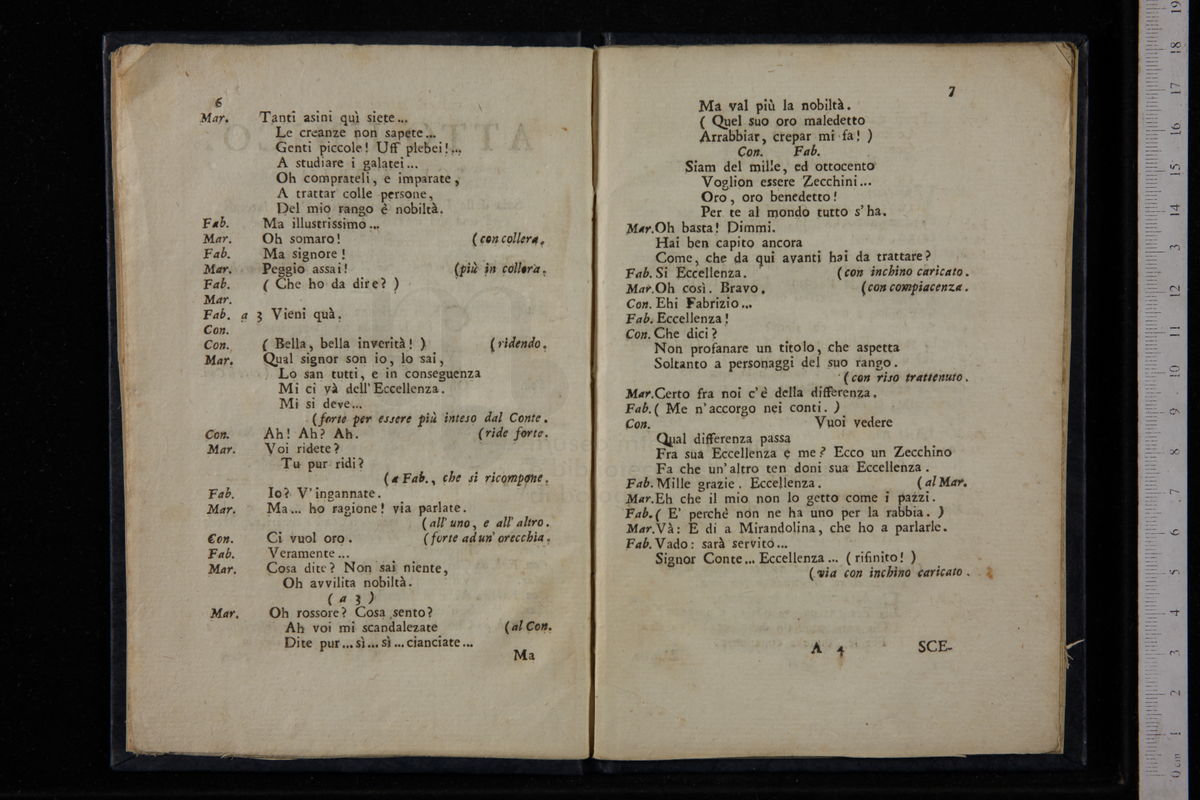 6
Mar. Tanti asini quì siete...
Le creanze non sapete...
Genti piccole! Uff plebei!...
A studiare i galatei...
Oh comprateli, e imparate,
A trattar colle persone,
Del mio rango è nobiltà.
Fab. Ma illustrissimo...
Mar. Oh somaro! (con collera.
Fab. Ma signore!
Mar. Peggio assai! (più in collera.
Fab. ( Che ho da dire? )
Mar.
Fab. a 3 Vieni quà.
Con.
Con. ( Bella, bella inverità! ) (ridendo.
Mar. Qual signor son io, lo sai,
Lo san tutti, e in conseguenza
Mi ci và dell' Eccellenza.
Mi si deve...
(forte per essere più inteso dal Conte.
Con. Ah! Ah? Ah. (ride forte.
Mar. Voi ridete?
Tu pur ridi?
(a Fab., che si ricompone.
Fab. Io? V' ingannate.
Mar. Ma... ho ragione! via parlate.
(all' uno, e all' altro.
Con. Ci vuol oro. (forte ad un' orecchia.
Fab. Veramente...
Mar. Cosa dite? Non sai niente,
Oh avvilita nobiltà.
( a 3 )
Mar. Oh rossore? Cosa sento?
Ah voi mi scandalezate (al Con.
Dite pur... sì... sì... cianciate...
Ma
7
Ma val più la nobiltà.
( Quel suo oro maledetto
Arrabbiar, crepar mi fa! )
Con. Fab.
Siam del mille, ed ottocento
Voglion essere Zecchini...
Oro, oro benedetto!
Per te al mondo tutto s' ha.
Mar. Oh basta! Dimmi.
Hai ben capito ancora
Come, che da qui avanti hai da trattare?
Fab. Si Eccellenza. (con inchino caricato.
Mar. Oh così. Bravo. (con compiacenza.
Con. Ehi Fabrizio...
Fab. Eccellenza!
Con. Che dici?
Non profanare un titolo, che aspetta
Soltanto a personaggi del suo rango.
(con riso trattenuto.
Mar. Certo fra noi c' è della differenza.
Fab. ( Me n' accorgo nei conti. )
Con. Vuoi vedere
Qual differenza passa
Fra sua Eccellenza e me? Ecco un Zecchino
Fa che un' altro ten doni sua Eccellenza.
Fab. Mille grazie. Eccellenza. (al Mar.
Mar. Eh che il mio non lo getto come i pazzi.
Fab. ( E' perchè non ne ha uno per la rabbia. )
Mar. Và: E di a Mirandolina, che ho a parlarle.
Fab. Vado: sarà servito...
Signor Conte... Eccellenza... ( rifinito! )
(via con inchino caricato.
A 4 SCE-